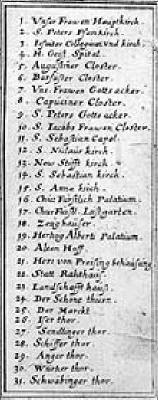 1. Vnser Frawen Hauptkirch.
2. S. Peters Pfarrkirch.
3. Iesuiter Collegium vnd kirch.
4. H. Geist Spital.
5. Augustiner Closter.
6. Barfüsser Closter.
7. Vns. Frawen Gotts acker.
8. Capuciner Closter.
9. S. Peters Gotts acker.
10. S. Iacobs Frawen Closter.
11. S. Sebastian Capel.
12. S. Niclaus kirch.
13. New Stifft kirch.
14. S. Sebastian kirch.
15. S. Anne kirch.
16. Churfürstlich Palatium.
17. Churfürstl. Lustgarten.
18. Zeughauser.
19. Hertzog Alberti Palatium.
20. Alten Hoff.
21. Herr von Preising behausung
22. Statt Rahthaus.
23. Landschafft hauß.
24. Der Schöne thurn.
25. Der Marckt
26. Iser thor.
27. Sendlinger thor.
28. Schiffer thor
29. Anger thor.
30. Wurtzer thor.
31. Schwabinger thor.